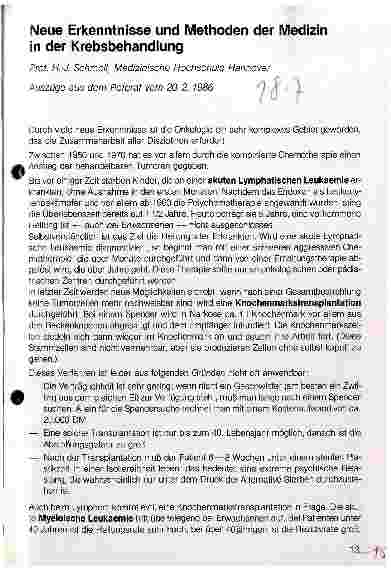 Neue Erkenntnisse und Methoden der Medizin
in der Krebsbehandlung
Prof. H. J. Schmoll, Medizinische Hochschule Hannover
Auszüge aus dem Referat vom 20. 2. 1986
Durch viele neue Erkenntnisse ist die Onkologie ein sehr komplexes Gebiet geworden,
das die Zusammenarbeit aller Disziplinen erfordert.
Zwischen 1950 und 1970 hat es vor allem durch die kombinierte Chemotherapie einen
Anstieg der behandelbaren Tumoren gegeben.
Bis vor einiger Zeit starben Kinder, die an einer akuten Lymphatischen Leukaemie er-
krankten, ohne Ausnahme in den ersten Monaten. Nachdem das Endoxan als Leukaemie-
ab 1960 die Polychemotherapie angewandt wurden, stieg
die Überlebenszeit bereits auf 1 1/2 Jahre. Heute beträgt sie 5 Jahre, eine vollkommene
Heilung ist — auch bei Erwachsenen — nicht ausgeschlossen.
Selbstverständlich ist das Ziel die Heilung aller Erkrankten. Wird eine akute Lymphati-
sche Leukaemie diagnostiziert, so beginnt man mit einer schweren aggressiven Che-
motherapie, die über Monate durchgeführt und dann von einer Erhaltungstherapie ab-
gelöst wird, die über Jahre geht. Diese Therapie sollte nur in onkologischen oder pädia-
trischen Zentren durchgeführt werden.
In letzter Zeit werden neue Möglichkeiten erprobt: wenn nach einer Ganzkörperbestrahlung
keine Tumorzellen mehr nachweisbar sind, wird eine Knochenmarktransplantation
durchgeführt. Bei einem Spender wird in Narkose ca. 1 l Knochenmark vor allem aus
den Beckenknochen abgesaugt und dem Empfänger infundiert. Die Knochenmarkszel-
len siedeln sich dann wieder im Knochenmark an und nehmen ihre Arbeit auf. (Diese
Stammzellen sind nicht vermehrbar, aber sie produzieren Zellen ohne selbst kaputt zu
gehen.)
Dieses Verfahren ist leider aus folgenden Gründen nicht oft anwendbar:
— Die Verträglichkeit ist sehr gering; wenn nicht ein Geschwister (am besten ein Zwil-
ling aus dem gleichen Ei) zur Verfügung steht, muß man lange nach einem Spender
suchen. Allein für die Spendersuche rechnet man mit einem Kostenaufwand von ca.
20.000 DM.
— Eine solche Transplantation ist nur bis zum 40. Lebensjahr möglich, danach ist die
Abstoßungsgefahr zu groß.
— Nach der Transplantation muß der Patient 6—8 Wochen unter einem sterilen Pla-
stikzelt in einer Isoliereinheit leben; das bedeutet eine extreme psychische Bela-
stung, die wahrscheinlich nur unter dem Druck der Alternative Sterben durchzuste-
hen ist.
Auch beim Lymphom kommt evtl. eine Knochenmarktransplantation in Frage. Die aku-
te Myeloische Leukaemie tritt überwiegend bei Erwachsenen auf. Bei Patienten unter
40 Jahren ist die Heilungsrate sehr hoch, bei über 40jährigen ist die Rezidivrate groß.
13